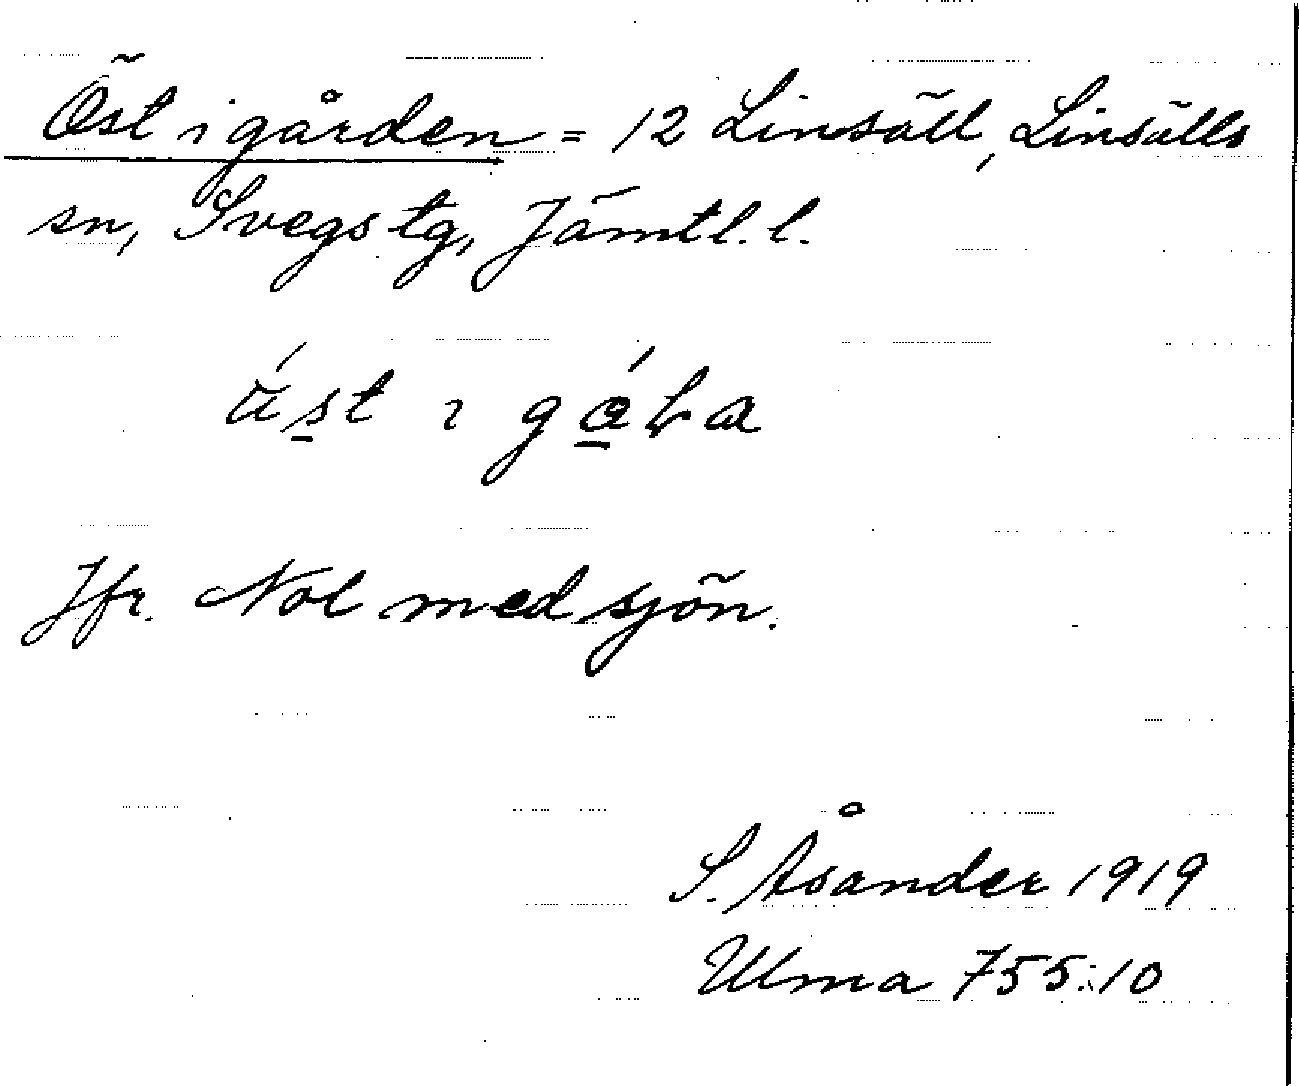 Öst i gården = 12 Linsäll, Linsälls
sn, Svegs tg, Jämtl. l.
Jfr. Nol med sjön.
S. Åsander 1919
Ulma 755:10